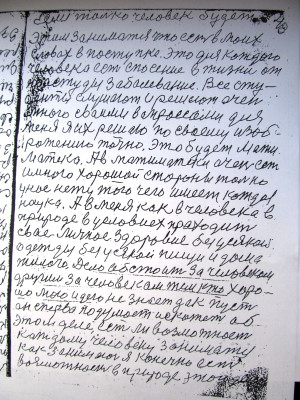 Если только человек будет
этим заниматся что есть в моих
словах в поступке. Это для каждого
человека есть спосение в жизни от
простуди заболевание. Все сту-
денти слушают и решают очен
много своими вопросами для
меня я их решаю по своему изоб-
ротению точно, Это будет мати
матека. А в математеки очен ест
много хорошой стороны только
у нее нету того чего имеет каждая
наука. А в меня как в человека в
природе в условиях приходит
свае личное здоровие без усякой
одежды без усякой пищи и дома
жилого. Дело обстоит за человеком
другим за человекам тем кто хоро-
шо мою идею не знает дак пуст
он сперва подумает и скажет об
этом деле, ест ли возможност
каждому человеку занимати
как занимаюс я конечно ест
возможност в природе этого